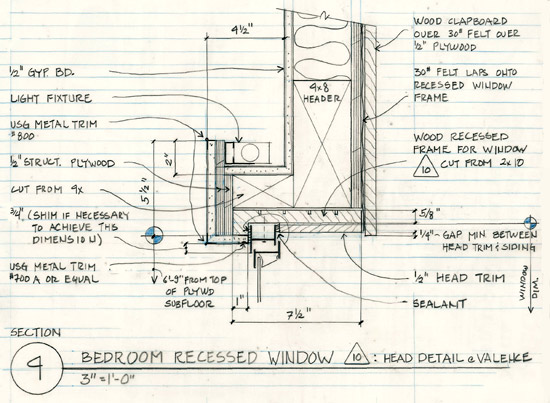 4 1/2"
WOOD CLAPBOARD
OVER 30# FELT OVER
1/2" PLYWOOD
1/2" GYP. BD.
4x8
HEADER
30# FELT LAPS ONTO
RECESSED WINDOW
FRAME
LIGHT FIXTURE
USG METAL TRIM
#800
2"
WOOD RECESSED
FRAME FOR WINDOW
10 CUT FROM 2x10
1/2" STRUCT. PLYWOOD
5 1/2"
CUT FROM 4x
3/4" (SHIM IF NECESSARY
TO ACHIEVE THIS
DIMENSION)
5/8"
1/4" - GAP MIN BETWEEN
HEAD TRIM & SIDING
USG METAL TRIM
#700 A OR EQUAL
6'-9" FROM TOP
OF PLYWD
SUBFLOOR
1"
7 1/2"
1/2" HEAD TRIM
SEALANT
WINDOW
DIM.
SECTION
4
BEDROOM RECESSED WINDOW 10 : HEAD DETAIL @ VALENCE
3" = 1'-0"